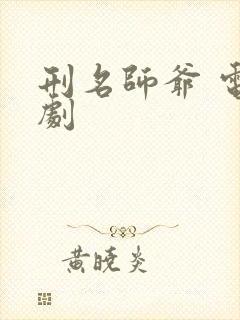 刑名師爺 電
劇
黄曉炎